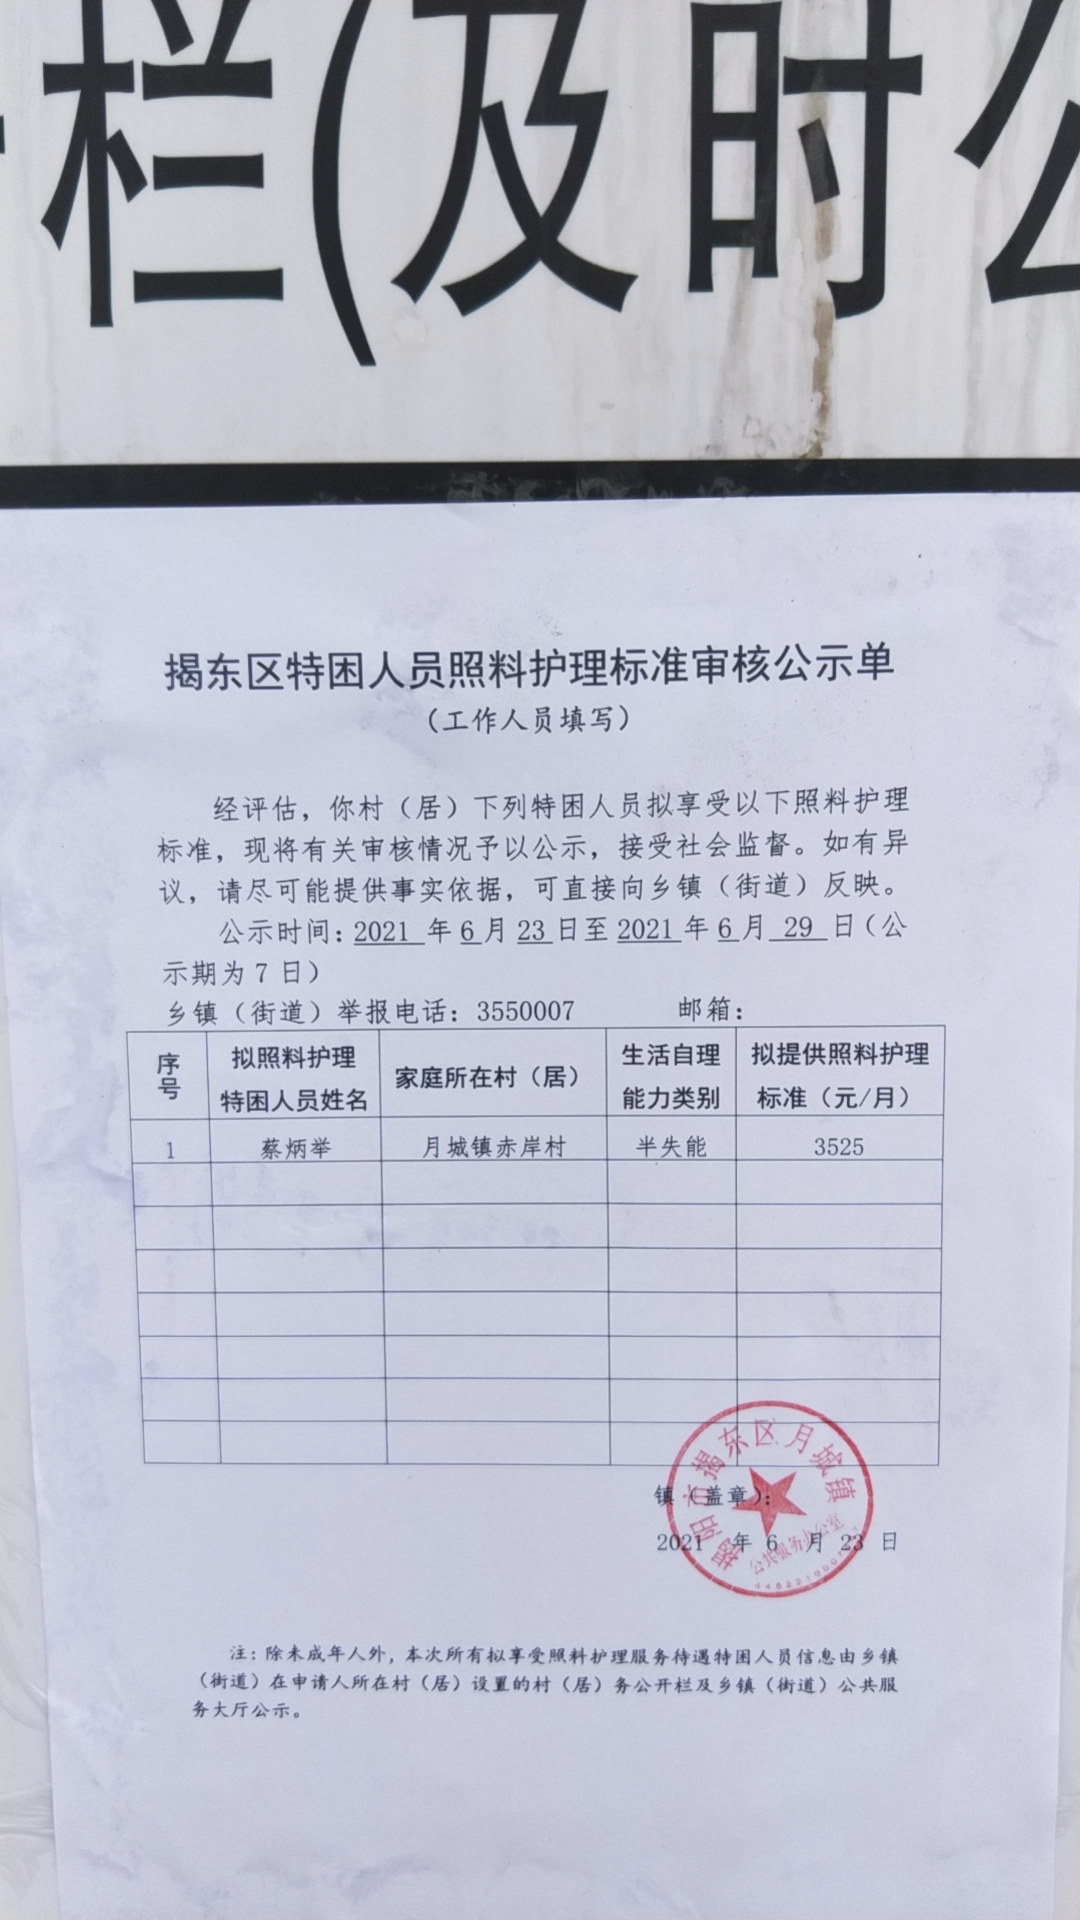 栏(及时公
揭东区特困人员照料护理标准审核公示单
（工作人员填写）
经评估，你村（居）下列特困人员拟享受以下照料护理
标准，现将有关审核情况予以公示，接受社会监督。如有异
议，请尽可能提供事实依据，可直接向乡镇（街道）反映。
公示时间：2021 年 6 月 23 日至 2021 年 6 月 29 日（公
示期为 7 日）
乡镇（街道）举报电话：3550007 邮箱：
序号 拟照料护理特困人员姓名 家庭所在村（居） 生活自理能力类别 拟提供照料护理标准（元/月）
1 蔡炳举 月城镇赤岸村 半失能 3525
揭阳市揭东区月城镇
公共服务办公室
镇（盖章）：
2021 年 6 月 23 日
注：除未成年人外，本次所有拟享受照料护理服务待遇特困人员信息由乡镇
（街道）在申请人所在村（居）设置的村（居）务公开栏及乡镇（街道）公共服
务大厅公示。